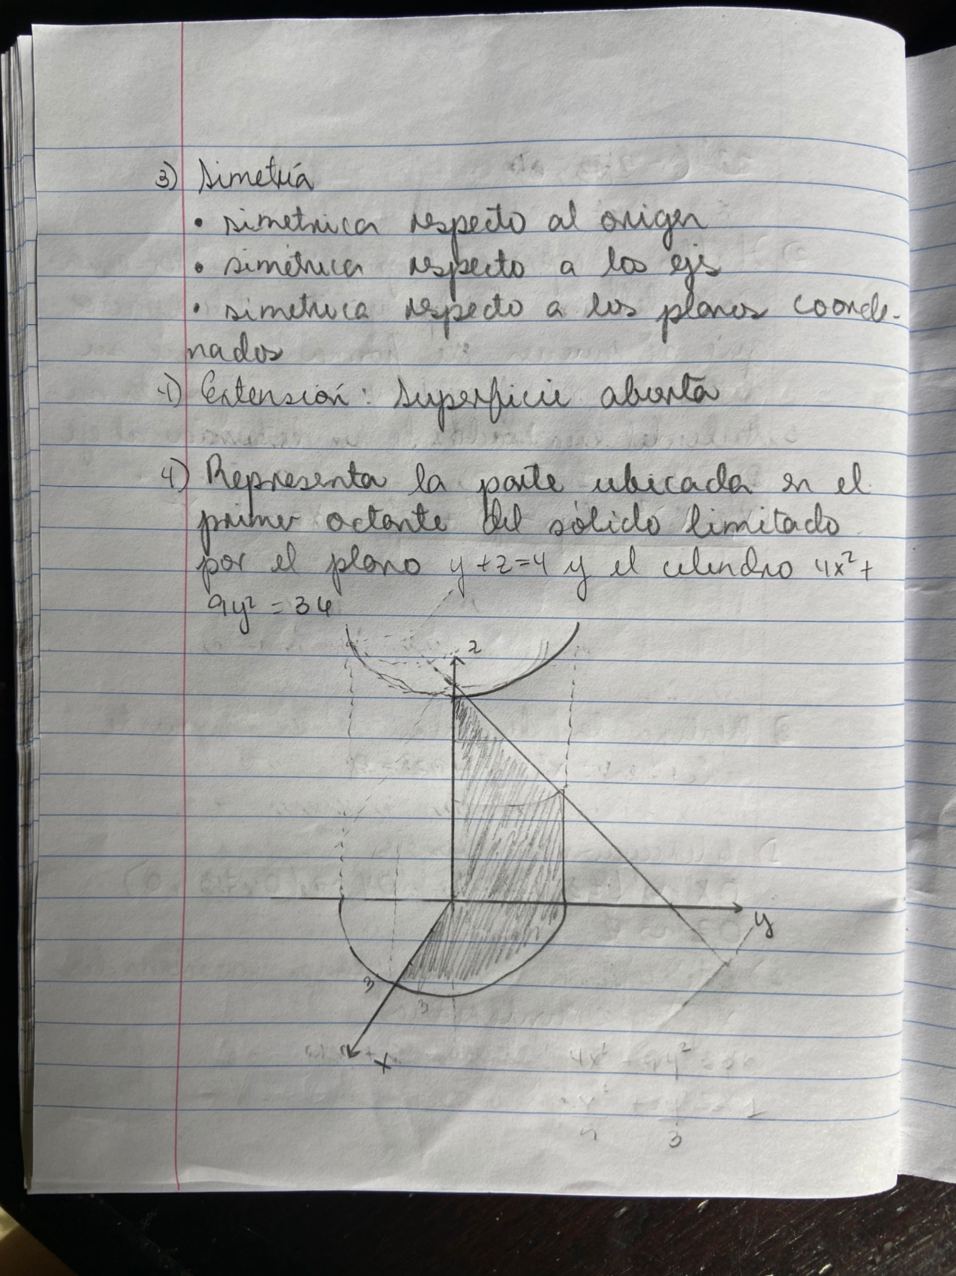 3) Simetría
• simetrica respecto al origen
• simétrica respecto a los ejs
• simetrica respecto a los planos coorde-
nados
4) Extensión: Superficie abierta
4) Representa la parte ubicada en el
primer octante del sólido limitado
por el plano y+z=4 y el cilindro 4x²+
9y² = 36
z
y
3
3
x
3